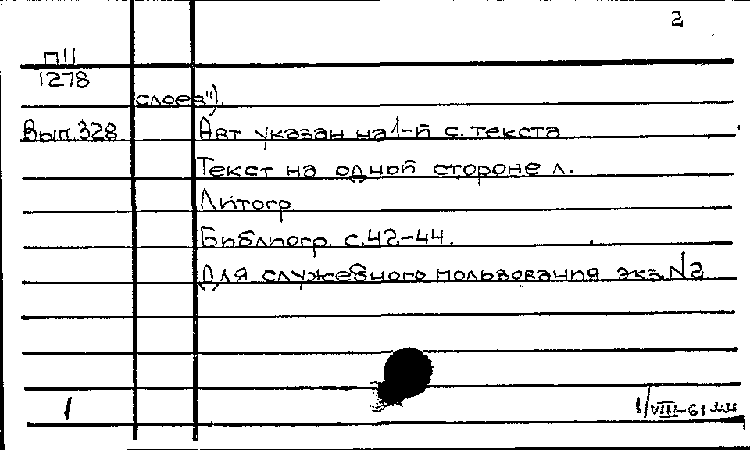 2
П11
1278
слоев").
Вып.328 Авт указан на 1-й с. текста
Текст на одной стороне л.
Литогр
Библиогр с.42-44.
Для служебного пользования экз.N2
1 1/VIII-61